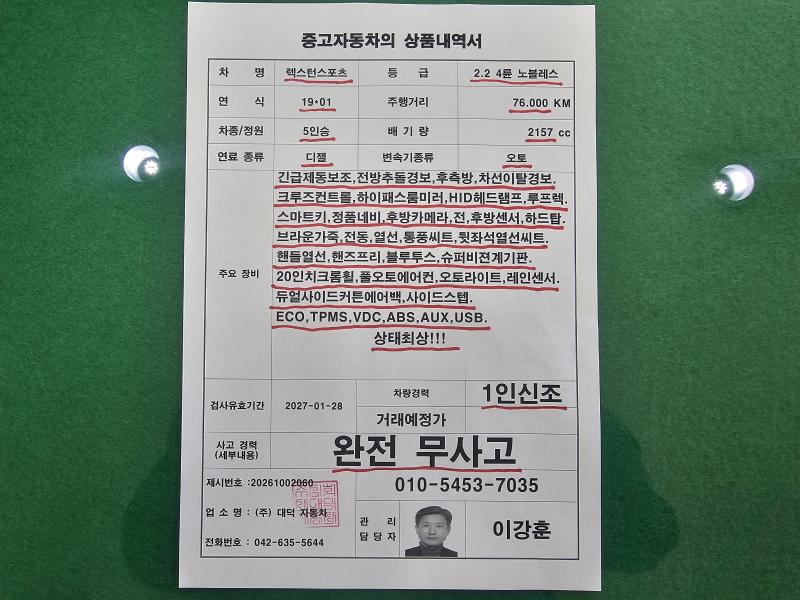 중고자동차의 상품내역서
차 명 렉스턴스포츠 등 급 2.2 4륜 노블레스
연 식 19*01 주행거리 76.000 KM
차종/정원 5인승 배 기 량 2157 cc
연료 종류 디젤 변속기종류 오토
긴급제동보조,전방추돌경보,후측방,차선이탈경보.
크루즈컨트롤,하이패스룸미러,HID헤드램프,루프렉.
스마트키,정품네비,후방카메라,전,후방센서,하드탑.
브라운가죽,전동,열선,통풍씨트,뒷좌석열선씨트.
핸들열선,핸즈프리,블루투스,슈퍼비젼계기판.
주요 장비 20인치크롬휠,풀오토에어컨,오토라이트,레인센서.
듀얼사이드커튼에어백,사이드스텝.
ECO,TPMS,VDC,ABS,AUX,USB.
상태최상!!!
검사유효기간 2027-01-28 차량경력 1인신조
거래예정가
사고 경력
(세부내용) 완전 무사고
제시번호 :20261002060 010-5453-7035
업 소 명 : (주) 대덕 자동차
관 리
담 당 자 이강훈
전화번호 : 042-635-5644